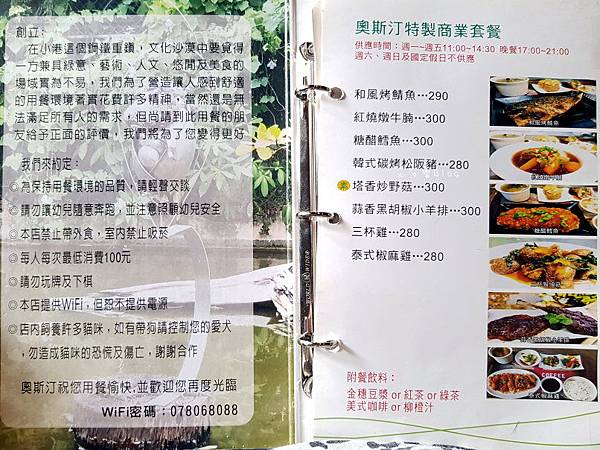 創立:
在小港這個鋼鐵重鎮，文化沙漠中要覓得
一方兼具綠意、藝術、人文、悠閒及美食的
場域實為不易，我們為了營造讓人感到舒適
的用餐環境着實花費許多精神，當然還是無
法滿足所有人的需求，但尚請到此用餐的朋
友給予正面的評價，我們將為了您變得更好
我們來約定:
◎為保持用餐環境的品質，請輕聲交談
◎請勿讓幼兒隨意奔跑，並注意照顧幼兒安全
◎本店禁止帶外食，室內禁止吸菸
◎每人每次最低消費100元
◎請勿玩牌及下棋
◎本店提供WiFi，但恕不提供電源
◎店內飼養許多貓咪，如有帶狗請控制您的愛犬
，勿造成貓咪的恐慌及傷亡，謝謝合作
奧斯汀祝您用餐愉快,並歡迎您再度光臨
WiFi密碼：078068088
WORLD WIDE®
奧斯汀特製商業套餐
供應時間：週一~週五11:00~14:30 晚餐17:00~21:00
週六、週日及國定假日不供應
和風烤鯖魚⋯290
紅燒燉牛腩⋯300
糖醋鱈魚⋯300
韓式碳烤松阪豬⋯280
素 塔香炒野菇⋯300
蒜香黑胡椒小羊排⋯300
三杯雞⋯280
泰式椒麻雞⋯280
和風烤鯖魚
糖醋鱈魚
COFFEE
泰式椒麻雞
附餐飲料：
金穗豆漿 or 紅茶 or 綠茶
美式咖啡 or 柳橙汁